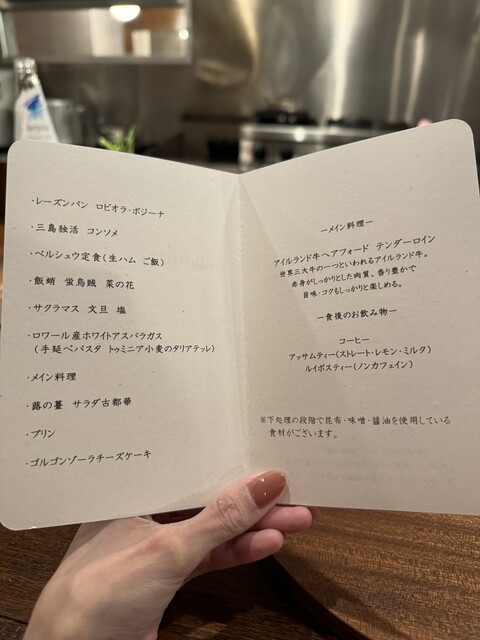 ・レーズンパン ロビオラ・ボジーナ
・三島独活 コンソメ
・ペルシュウ定食(生ハム ご飯)
・飯蛸 蛍烏賊 菜の花
・サクラマス 文旦 塩
・ロワール産ホワイトアスパラガス
(手延べパスタ トゥミニア小麦のタリアテッレ)
・メイン料理
・蕗の薹 サラダ古都華
・プリン
・ゴルゴンゾーラチーズケーキ
―メイン料理―
アイルランド牛ヘアフォード テンダーロイン
世界三大牛の一つといわれるアイルランド牛。
赤身がしっかりとした肉質、香り豊かで
旨味・コクもしっかりと楽しめる。
―食後のお飲み物―
コーヒー
アッサムティー(ストレート・レモン・ミルク)
ルイボスティー(ノンカフェイン)
※下処理の段階で昆布・味噌・醤油を使用している
食材がございます。